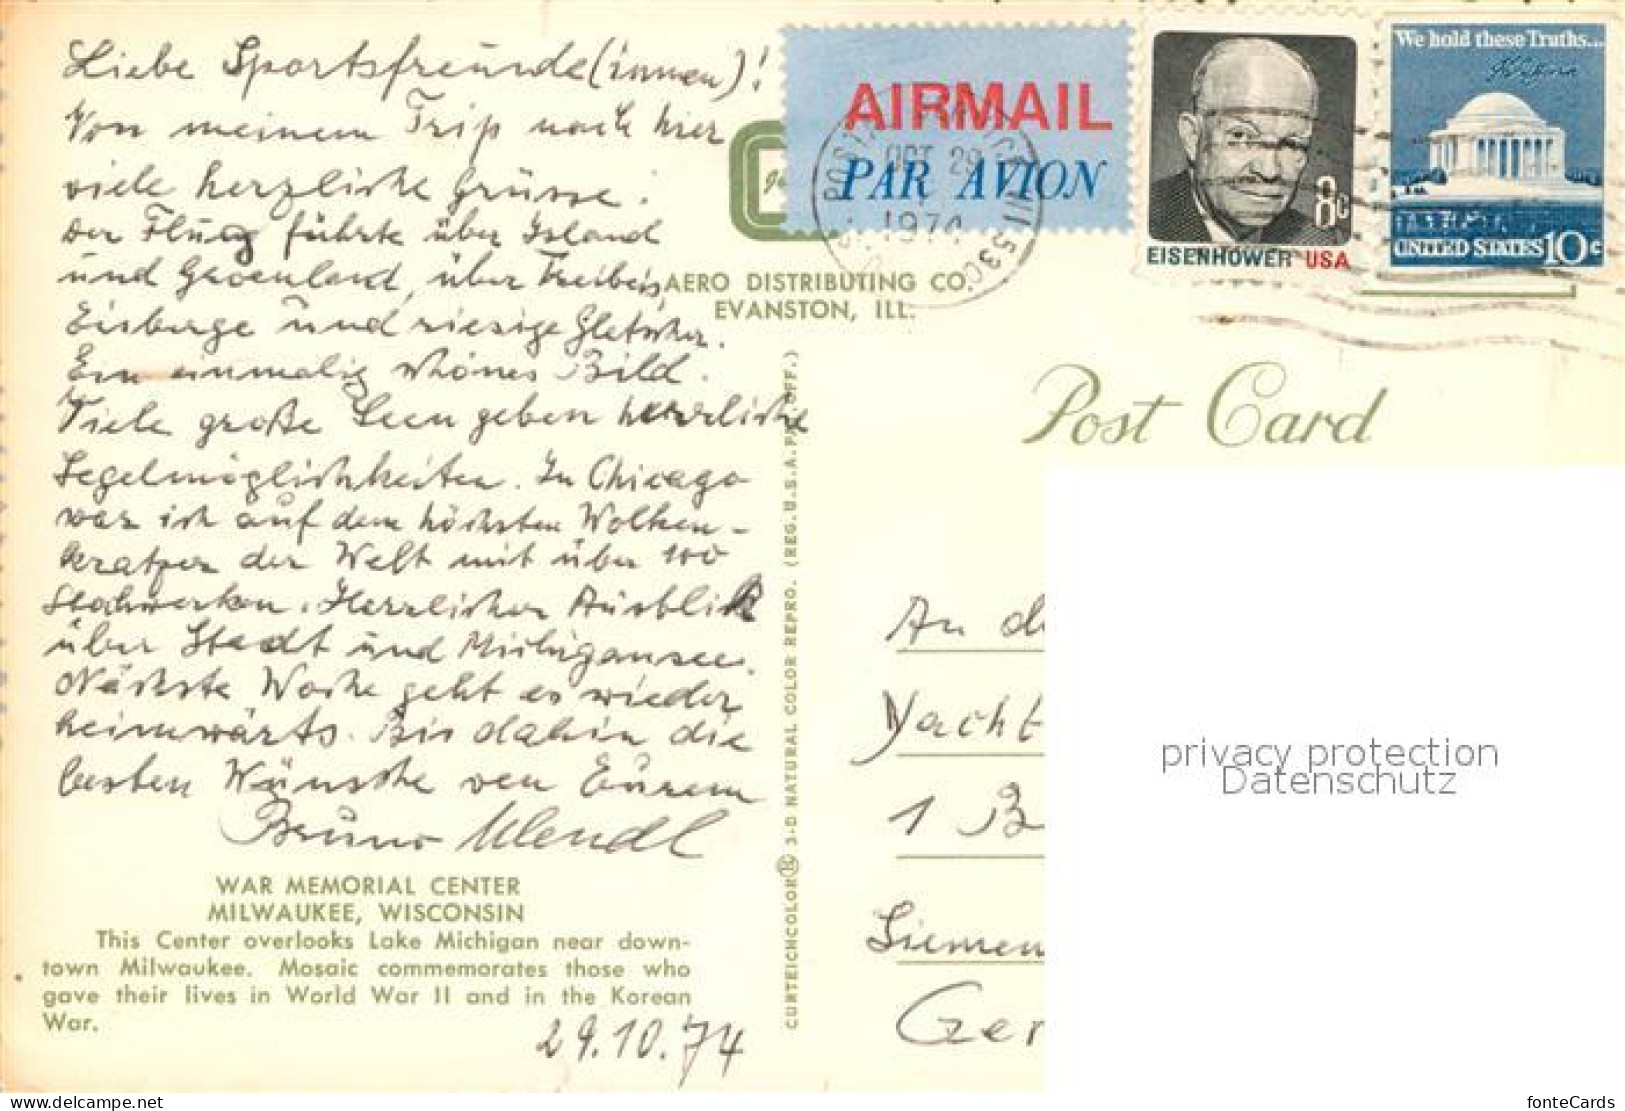 Liebe Sportsfreunde(innen)!
Von meinem Trip nach hier
viele herzliche Grüsse.
Der Flug führte über Island
und Groenland, über Treibeis,
Eisberge und riesige Gletscher.
Ein einmalig schönes Bild.
Viele große Seen geben herrliche
Segelmöglichkeiten. In Chicago
war ich auf dem höchsten Wolken-
kratzer der Welt mit über 100
Stockwerken. Herrlicher Ausblick
über Stadt und Michigansee.
Nächste Woche geht es wieder
heimwärts. Bis dahin die
besten Wünsche von Eurem
Bruno
WAR MEMORIAL CENTER
MILWAUKEE, WISCONSIN
This Center overlooks Lake Michigan near down-
town Milwaukee. Mosaic commemorates those who
gave their lives in World War II and in the Korean
War.
29.10.74
AERO DISTRIBUTING CO.
EVANSTON, ILL.
CURTEICHCOLOR® 3-D NATURAL COLOR REPRO. (REG. U.S.A. PAT. OFF.)
AIRMAIL
PAR AVION
OCT 29
1974
EISENHOWER USA
8c
We hold these Truths...
UNITED STATES 10c
Post Card
An d
Yacht
1 B
Siemen
Ger
privacy protection
Datenschutz
www.delcampe.net
fonteCards